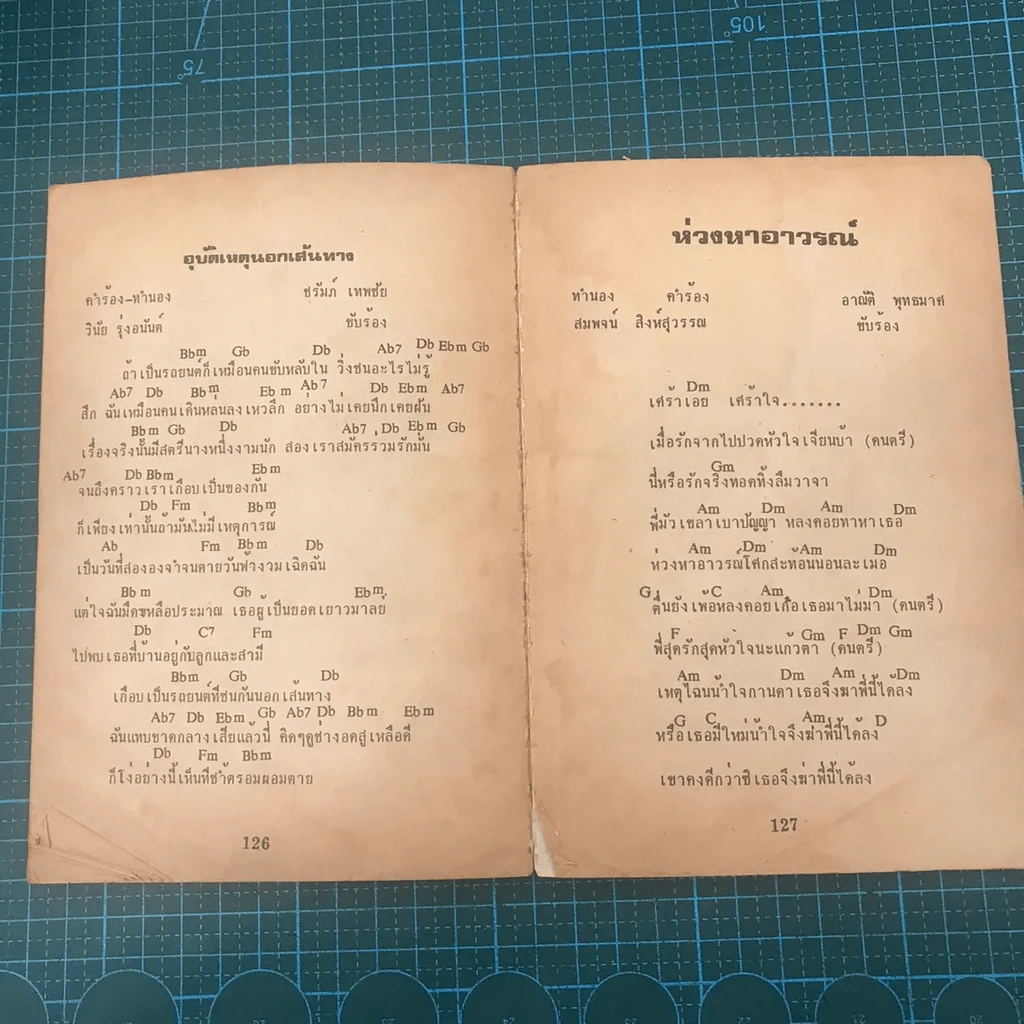 อุบัติเหตุนอกเส้นทาง
คำร้อง-ทำนอง ชรัมภ์ เทพชัย
วินัย รุ่งอนันต์ ขับร้อง
Bbm Gb Db Ab7 Db Ebm Gb
ถ้าเป็นรถยนต์ก็เหมือนคนขับหลับใน วิ่งชนอะไรไม่รู้
Ab7 Db Bbm Ebm Ab7 Db Ebm Ab7
สึก ฉันเหมือนคนเดินหล่นลงเหวลึก อย่างไม่เคยนึกเคยฝัน
Bbm Gb Db Ab7 Db Ebm Gb
เรื่องจริงนั้นมีสตรีนางหนึ่งงามนัก สองเราสมัครรวมรักมั่น
Ab7 Db Bbm Ebm
จนถึงคราวเราเกือบเป็นของกัน
Db Fm Bbm
ก็เพียงเท่านั้นถ้ามันไม่มีเหตุการณ์
Ab Fm Bbm Db
เป็นวันที่สององจำจนตายวันฟ้างวมเฉิดฉัน
Bbm Gb Ebm
แต่ใจฉันมืดเหลือประมาณ เธอผู้เป็นยอดเยาวมาลย์
Db C7 Fm
ไปพบเธอที่บ้านอยู่กับลูกและสามี
Bbm Gb Db
เกือบเป็นรถยนต์ที่ชนกันนอกเส้นทาง
Ab7 Db Ebm Gb Ab7 Db Bbm Ebm
ฉันแทบขาดกลางเสียแล้วนี่ คิดๆดูช่างอดสูเหลือดี
Db Fm Bbm
ก็โง่อย่างนี้เห็นที่ช้ำตรอมผอมตาย
126
ห่วงหาอาวรณ์
ทำนอง คำร้อง อาณัติ พุทธมาศ
สมพจน์ สิงห์สุวรรณ ขับร้อง
Dm
เศร้าเอย เศร้าใจ.......
เมื่อรักจากไปปวดหัวใจเจียนบ้า (ดนตรี)
Gm
นี่หรือรักจริงทอดทิ้งลืมวาจา
Am Dm Am Dm
พี่มัวเขลาเบาปัญญา หลงคอยหาหาเธอ
Am Dm Am Dm
ห่วงหาอาวรณ์โศกสะท้อนนอนละเมอ
G C Am Dm
ตื่นยังเพ้อหลงคอยเก้อเธอมาไม่มา (ดนตรี)
F Gm F Dm Gm
พี่สุดรักสุดหัวใจนะแก้วตา (ดนตรี)
Am Dm Am Dm
เหตุไฉนน้ำใจกานดาเธอจึงฆ่าพี่นี้ได้ลง
G C Am D
หรือเธอมีใหม่น้ำใจจึงฆ่าพี่นี้ได้ลง
เขาคงดีกว่าซิเธอจึงฆ่าพี่นี้ได้ลง
127
75°
105°